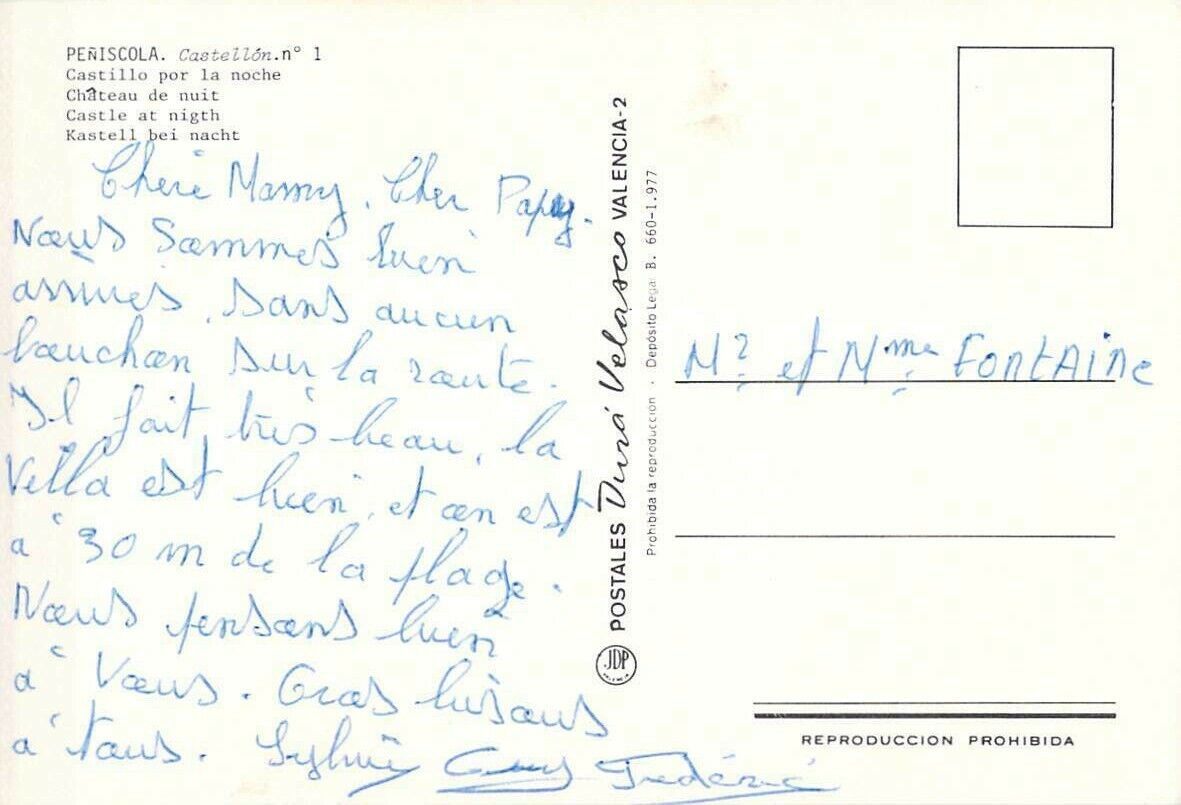 PEÑISCOLA. Castellón.n° 1
Castillo por la noche
Château de nuit
Castle at nigth
Kastell bei nacht
Chère Mamy, Cher Papy.
Nous Sommes bien
arrivés, sans aucun
bouchon sur la route.
Il fait très beau, la
Villa est bien, et on est
à 30 m de la plage.
Nous pensons bien
à Vous. Gros bisous
à tous. Sylvie Guy Frédéric
POSTALES Durá Velasco VALENCIA-2
Prohibida la reproducción · Depósito Legal B. 660-1.977
JDP
Mr et Mme FONTAINE
REPRODUCCION PROHIBIDA